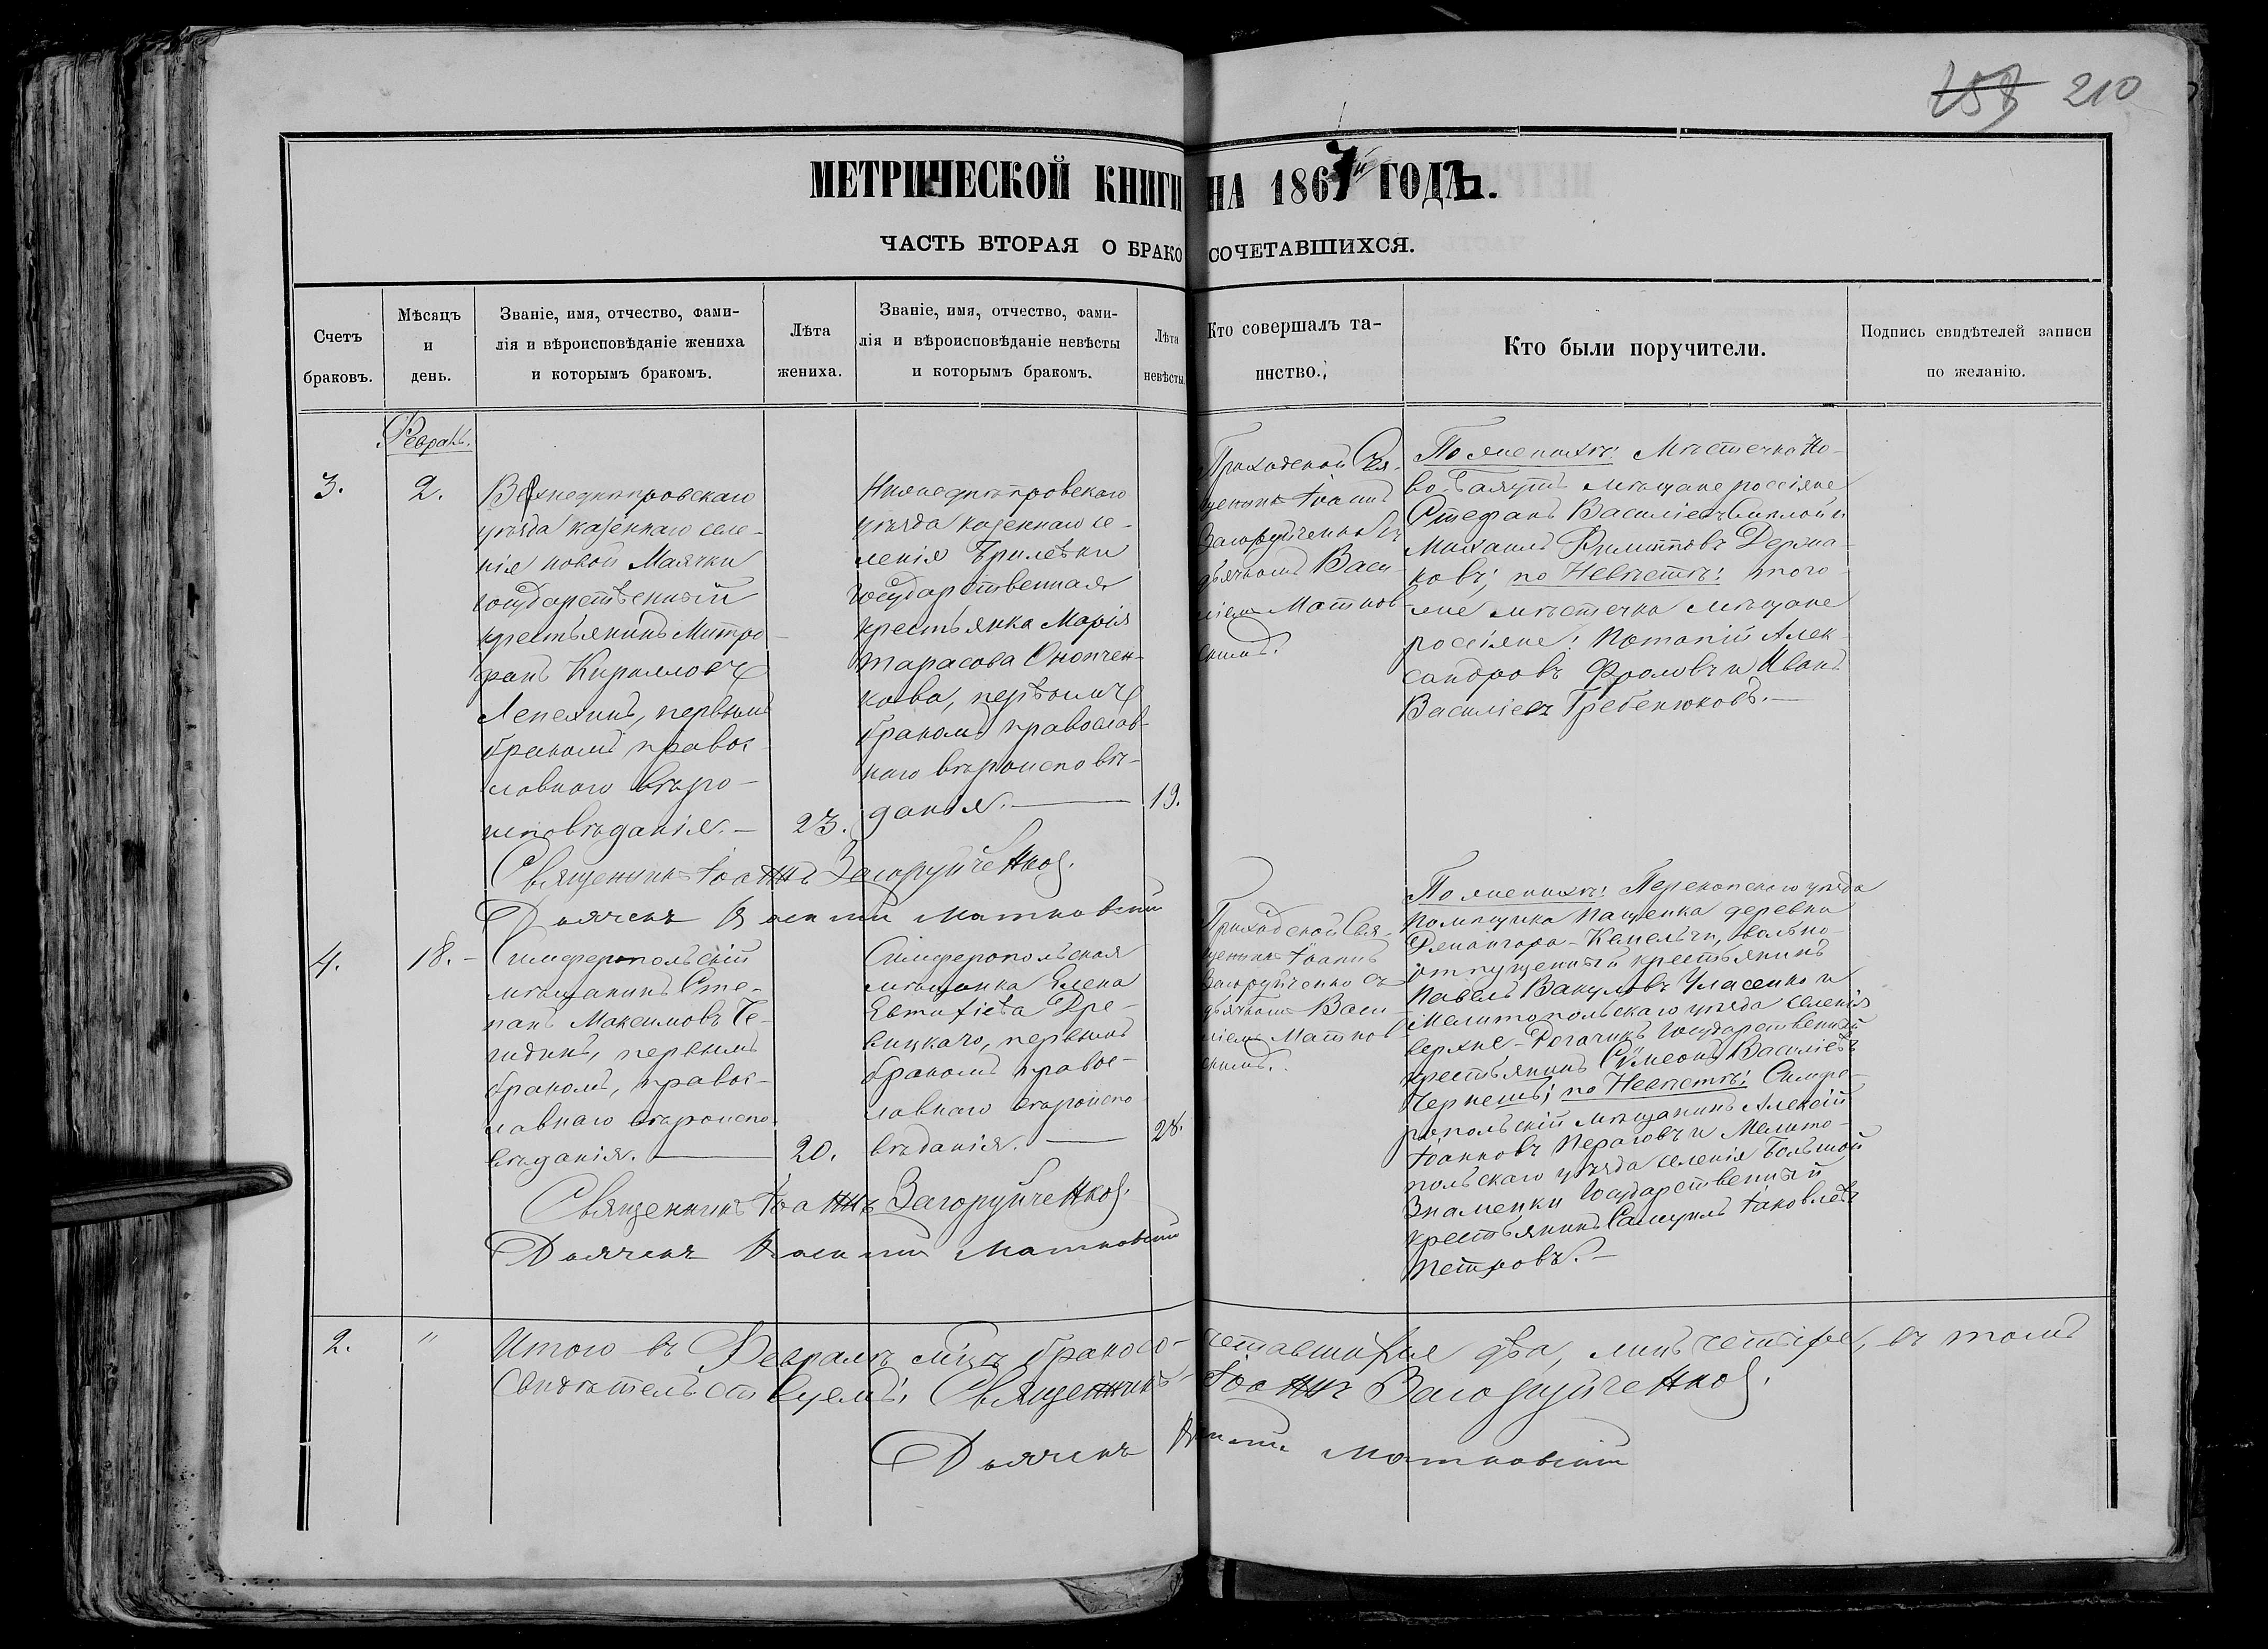 210
МЕТРИЧЕСКОЙ КНИГИ НА 1867й ГОДЪ.
ЧАСТЬ ВТОРАЯ О БРАКОСОЧЕТАВШИХСЯ.
Счетъ
браковъ.
Мѣсяцъ
и
день.
Званіе, имя, отчество, фами-
лія и вѣроисповѣданіе жениха
и которымъ бракомъ.
Лѣта
жениха.
Званіе, имя, отчество, фами-
лія и вѣроисповѣданіе невѣсты
и которымъ бракомъ.
Лѣта
невѣсты.
Кто совершалъ та-
инство.
Кто были поручители.
Подпись свидѣтелей записи
по желанію.
Февраль.
3.
2.
Верхнеднѣпровскаго
уѣзда казеннаго селе-
нія новой Маячки
государственный
крестьянинъ Митро-
фанъ Кириловъ
Лепехинъ, первымъ
бракомъ правос-
лавнаго вѣро-
исповѣданія.—
23.
Нижнеднѣпровскаго
уѣзда казеннаго се-
ленія Брилевки
государственная
крестьянка Марія
Тарасова
кова, первымъ
бракомъ православ-
наго вѣроисповѣ-
данія.—
19.
Приходской Свя-
щенникъ Іоаннъ
Загоруйченко съ
дьячкомъ Васи-
ліемъ Матков-
скимъ.
По женихѣ: Мѣстечка Но-
во- мѣщане россіяне
Стефанъ Василіевъ и
Михаилъ Филипповъ Держа-
ковъ; по Невѣстѣ: того-
же мѣстечка мѣщане
россіяне: Потапій Алек-
сандровъ Фроловъ и Иванъ
Василіевъ Гребенюковъ.—
Священникъ Іоаннъ Загоруйченко.
Дьячекъ Василій Матковскій
4.
18.-
Симферопольскій
мѣщанинъ Сте-
панъ Максимовъ Че-
гидинъ, первымъ
бракомъ, правос-
лавнаго вѣроиспо-
вѣданія.—
20.
Симферопольская
мѣщанка Елена
Евтихіева Дре-
вицкаго, первымъ
бракомъ правос-
лавнаго вѣроиспо-
вѣданія.—
Приходской Свя-
щенникъ Іоаннъ
Загоруйченко съ
дьячкомъ Васи-
ліемъ Матков-
скимъ.
По женихѣ: Перекопскаго уѣзда
помѣщика Пащенка деревни
Джангара-Кемельчи, вольно-
отпущенный крестьянинъ
Павелъ Вакуловъ Уласенко и
Мелитопольскаго уѣзда селенія
верхне-Рогачикъ государственный
крестьянинъ Сѵмеонъ Василіевъ
Чернешъ; по Невѣстѣ: Симфе-
ропольскій мѣщанинъ Алексій
Іоанновъ Пераговъ и Мелито-
польскаго уѣзда селенія Большой
Знаменки государственный
крестьянинъ Самуилъ Іаковлевъ
Петровъ.—
Священникъ Іоаннъ Загоруйченко.
Дьячекъ Василій Матковскій
2.
"
Итого въ Февралѣ м-цѣ бракосо-четавшихся два, лицъ четыре, въ томъ
Свидѣтельствуемъ: Священникъ Іоаннъ Загоруйченко.
Дьячекъ Василій Матковскій